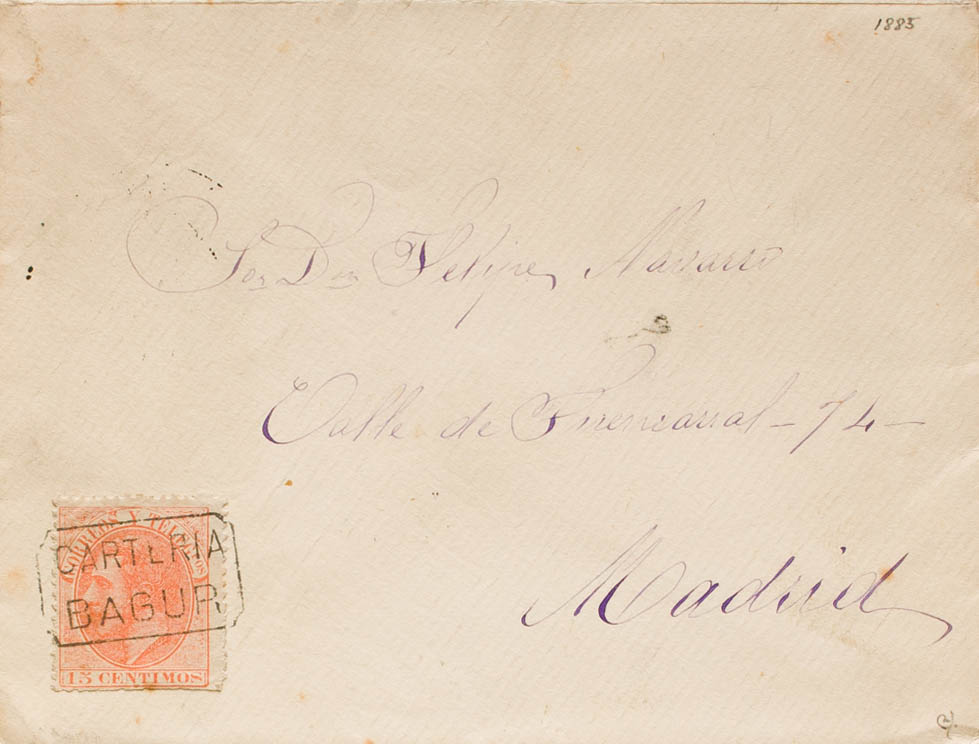 1885
Sor Don Felipe Navarro
Calle de Fuencarral - 74 -
Madrid
CORREOS Y TELEGFOS
CARTERIA
BAGUR
15 CENTIMOS